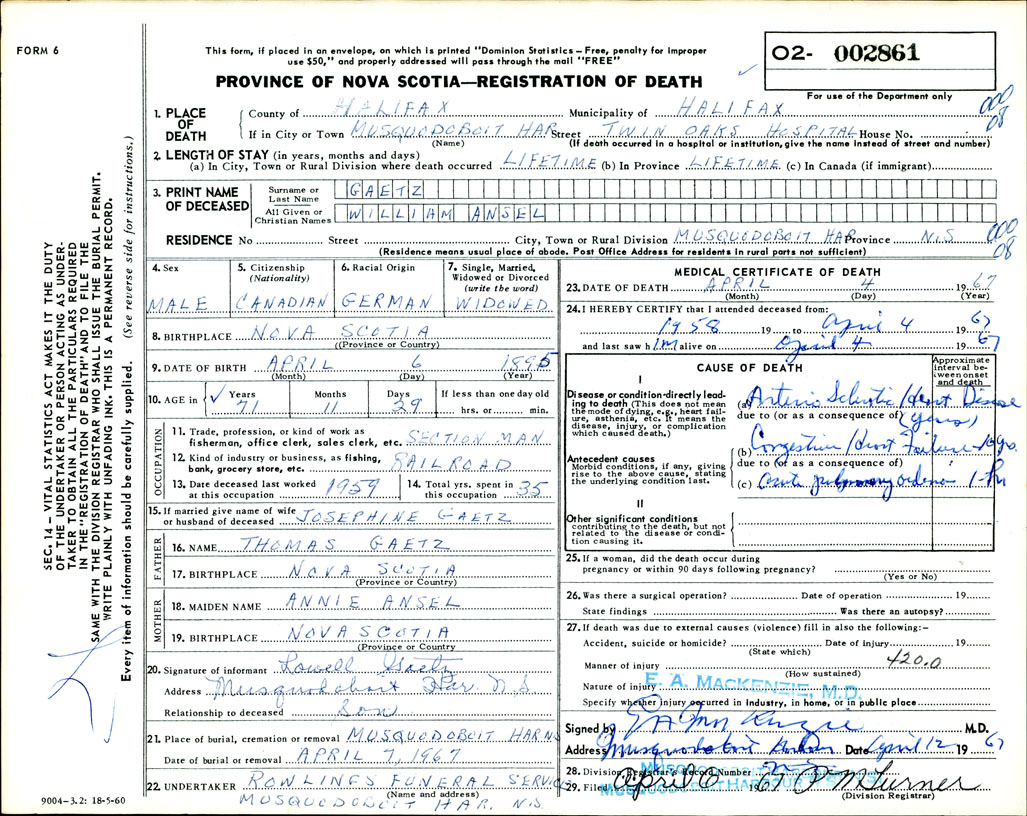 FORM 6
This form, if placed in an envelope, on which is printed "Dominion Statistics – Free, penalty for improper
use $50," and properly addressed will pass through the mail "FREE"
O2- 002861
For use of the Department only
PROVINCE OF NOVA SCOTIA—REGISTRATION OF DEATH
000
08
1. PLACE OF DEATH
County of HALIFAX Municipality of HALIFAX
If in City or Town MUSQUODOBOIT HAR Street TWIN OAKS HOSPITAL House No.
(Name) (If death occurred in a hospital or institution, give the name instead of street and number)
2. LENGTH OF STAY (in years, months and days)
(a) In City, Town or Rural Division where death occurred LIFETIME (b) In Province LIFETIME (c) In Canada (if immigrant)
3. PRINT NAME OF DECEASED
Surname or Last Name GAETZ
All Given or Christian Names WILLIAM ANSEL
000
08
RESIDENCE No Street City, Town or Rural Division MUSQUODOBOIT HAR Province N.S
(Residence means usual place of abode. Post Office Address for residents in rural parts not sufficient)
4. Sex MALE
5. Citizenship (Nationality) CANADIAN
6. Racial Origin GERMAN
7. Single, Married, Widowed or Divorced (write the word) WIDOWED
8. BIRTHPLACE NOVA SCOTIA
(Province or Country)
9. DATE OF BIRTH APRIL 6 1895
(Month) (Day) (Year)
10. AGE in Years 71 Months 11 Days 29 If less than one day old hrs. or min.
OCCUPATION
11. Trade, profession, or kind of work as
fisherman, office clerk, sales clerk, etc. SECTION MAN
12. Kind of industry or business, as fishing,
bank, grocery store, etc. RAILROAD
13. Date deceased last worked at this occupation 1959
14. Total yrs. spent in this occupation 35
15. If married give name of wife
or husband of deceased JOSEPHINE GAETZ
FATHER
16. NAME THOMAS GAETZ
17. BIRTHPLACE NOVA SCOTIA
(Province or Country)
MOTHER
18. MAIDEN NAME ANNIE ANSEL
19. BIRTHPLACE NOVA SCOTIA
(Province or Country
20. Signature of informant Lowell Gaetz
Address Musquodoboit Har. N.S
Relationship to deceased Son
21. Place of burial, cremation or removal MUSQUODOBOIT HAR NS
Date of burial or removal APRIL 7, 1967
22. UNDERTAKER ROWLINGS FUNERAL SERVICE
(Name and address)
MUSQUODOBOIT HAR. N.S
9004-3.2: 18-5-60
MEDICAL CERTIFICATE OF DEATH
23. DATE OF DEATH APRIL 4 1967
(Month) (Day) (Year)
24. I HEREBY CERTIFY that I attended deceased from:
1958 19 to April 4 1967
and last saw h im alive on April 4 1967
CAUSE OF DEATH
Approximate interval between onset and death
I
Disease or condition directly leading to death (This does not mean the mode of dying, e.g., heart failure, asthenia, etc. It means the disease, injury, or complication which caused death.)
(a) Arterio Sclerotic Heart Disease
due to (or as a consequence of) (years)
Antecedent causes
Morbid conditions, if any, giving rise to the above cause, stating the underlying condition last.
(b) Congestive Heart Failure yrs.
due to (or as a consequence of)
(c) acute pulmonary edema 1 hr
II
Other significant conditions
contributing to the death, but not related to the disease or condition causing it.
25. If a woman, did the death occur during
pregnancy or within 90 days following pregnancy?
(Yes or No)
26. Was there a surgical operation? Date of operation 19
State findings Was there an autopsy?
27. If death was due to external causes (violence) fill in also the following:–
Accident, suicide or homicide? Date of injury 19
(State which)
Manner of injury 420.0
(How sustained)
Nature of injury
E. A. MACKENZIE, M.D.
Specify whether injury occurred in Industry, in home, or in public place
Signed by E A MacKenzie M.D.
Address Musquodoboit Harbour Date April 12 1967
28. Division Registrar's Record Number
29. Filed April 1967
(Division Registrar)
SEC. 14 – VITAL STATISTICS ACT MAKES IT THE DUTY
OF THE UNDERTAKER OR PERSON ACTING AS UNDER-
TAKER TO OBTAIN ALL THE PARTICULARS REQUIRED
IN THE "REGISTRATION OF DEATH" AND TO FILE THE
SAME WITH THE DIVISION REGISTRAR WHO SHALL ISSUE THE BURIAL PERMIT.
WRITE PLAINLY WITH UNFADING INK. THIS IS A PERMANENT RECORD.
Every item of information should be carefully supplied. (See reverse side for instructions.)